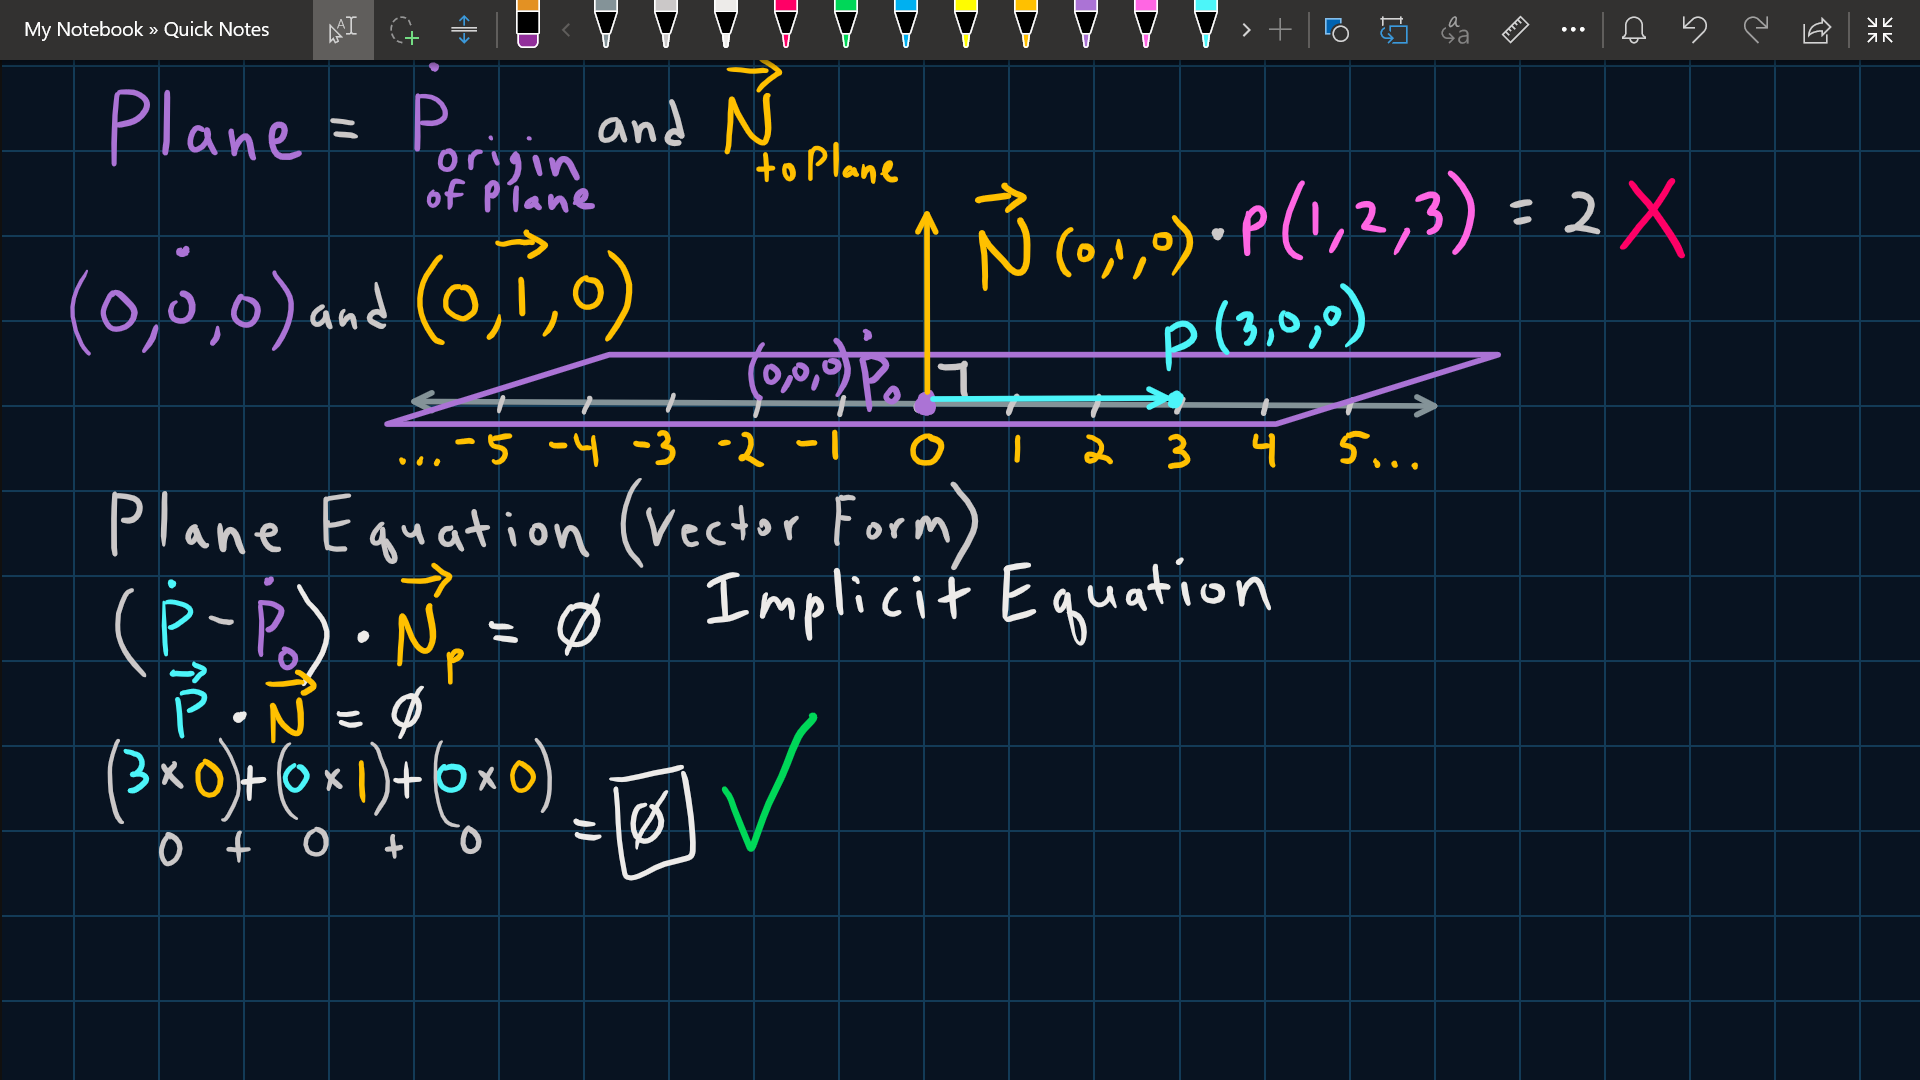 My Notebook » Quick Notes
Plane = P origin of plane and N to plane
(0,0,0) and (0,1,0)
N (0,1,0) · P(1,2,3) = 2 X
P(3,0,0)
(0,0,0) P₀
... -5 -4 -3 -2 -1 0 1 2 3 4 5...
Plane Equation (Vector Form)
Implicit Equation
(P - P₀) · Nₚ = Ø
P · N = Ø
(3×0)+(0×1)+(0×0)
0 + 0 + 0 = Ø